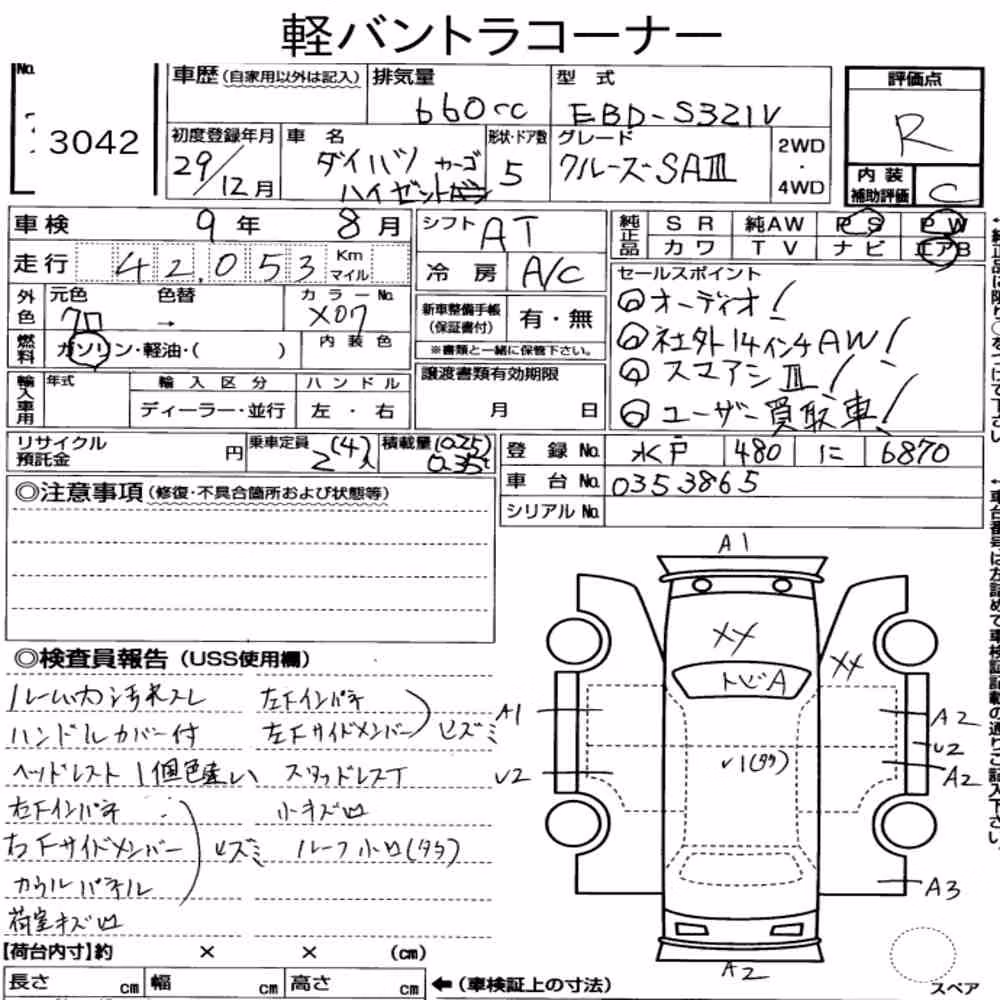 軽バントラコーナー
No.
3042
車歴(自家用以外は記入)
排気量
660cc
型式
EBD-S321V
初度登録年月
29/12月
車名
ダイハツ カーゴ
ハイゼット
形状・ドア数
5
グレード
クルーズSAⅢ
2WD
・
4WD
評価点
R
内装
補助評価
C
車検 9年 8月
走行 42,053 Km マイル
外色 元色 クロ 色替 → カラーNo. X07
燃料 ガソリン・軽油・( ) 内装色
輸入車用 年式 輸入区分 ハンドル
ディーラー・並行 左・右
シフト AT
冷房 A/C
新車整備手帳
(保証書付)
有・無
※書類と一緒に保管下さい。
譲渡書類有効期限
月 日
純正品 SR 純AW PS PW
カワ TV ナビ エアB
セールスポイント
◎オーディオ!
◎社外14インチAW!
◎スマアシⅢ!
◎ユーザー買取車!
リサイクル
預託金
円
乗車定員 2(4)人
積載量 (0.25) 0.35t
登録No. 水戸 480 に 6870
車台No. 0353865
シリアルNo.
◎注意事項(修復・不具合箇所および状態等)
◎検査員報告(USS使用欄)
ルーム内カン汚れスレ
ハンドルカバー付
ヘッドレスト1個色違い
右Fインパネ
右Fサイドメンバー
カウルパネル
ヒズミ
荷室キズ凹
左Fインパネ
左Fサイドメンバー
ヒズミ
スタッドレスT
小キズ凹
ルーフ小凹(タタ)
A1
XX
XX
トビA
A1
U2
U1(タタ)
A2
U2
A2
A3
A2
スペア
【荷台内寸】約 × × (cm)
長さ cm 幅 cm 高さ cm ←(車検証上の寸法)